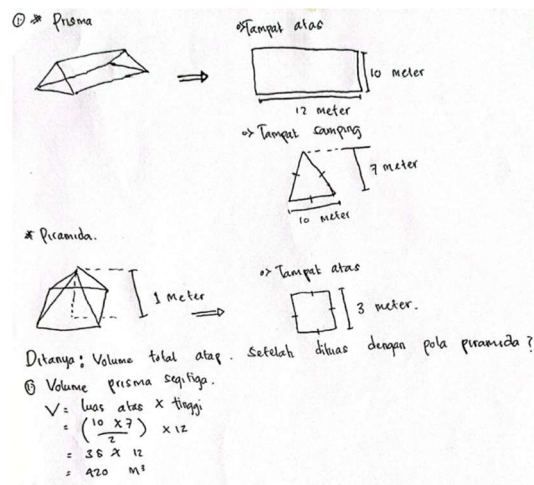 ① * Prisma
=> Tampat atas
10 meter
12 meter
=> Tampat samping
7 meter
10 meter
* Piramida.
1 meter
=> Tampat atas
3 meter.
Ditanya : Volume total atap. Setelah diluas dengan pola piramida ?
① Volume prisma segitiga.
V = luas alas x tinggi
= (10 x 7 / 2) x 12
= 35 x 12
= 420 m³